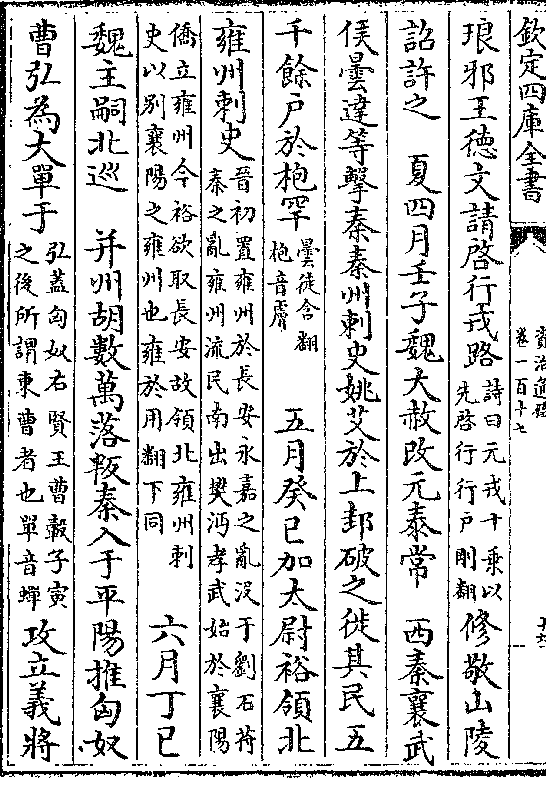 欽定四庫全書
資治通鑑
卷一百十七
琅邪王德文請啓行戎路詩曰元戎十乘以先啓行行戶剛翻修敬山陵
詔許之　夏四月壬子魏大赦改元泰常　西秦襄武
侯曇達等擊秦秦州刺史姚艾於上邽破之徙其民五
千餘户於枹罕曇徒含翻枹音膚　五月癸巳加太尉裕領北
雍州刺史晉初置雍州於長安永嘉之亂没于劉石苻秦之亂雍州流民南出樊沔孝武始於襄陽
僑立雍州今裕欲取長安故領北雍州刺史以别襄陽之雍州也雍於用翻下同　六月丁巳
魏主嗣北巡　并州胡數萬落叛秦入于平陽推匈奴
曹弘為大單于弘蓋匈奴右賢王曹轂子寅之後所謂東曹者也單音蟬攻立義將